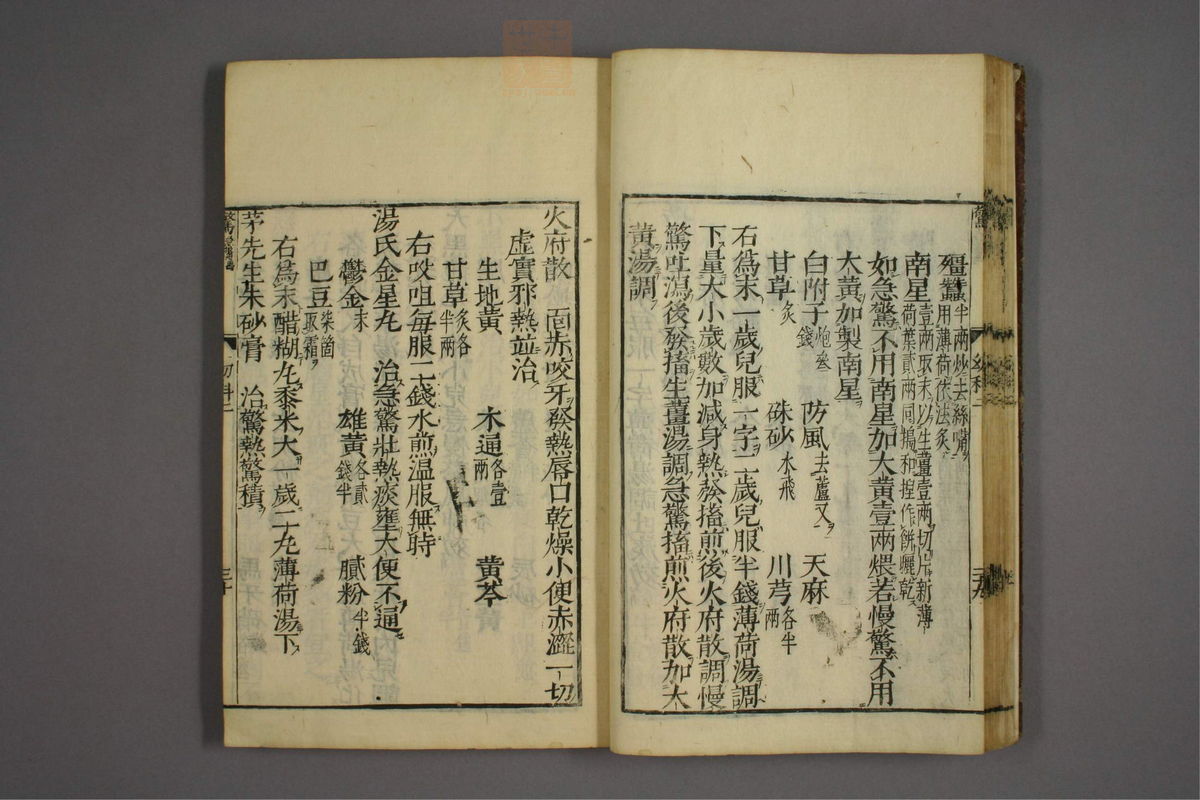 殭蠶半兩炒去絲嘴用薄荷依法炙
南星壹兩取末以生薑壹兩切片新薄荷葉貳兩同搗和捏作餅曬乾
如急驚不用南星加大黃壹兩煨若慢驚不用
大黃加製南星
白附子炮叁錢 防風去蘆叉 天麻
甘草炙 硃砂水飛 川芎各半兩
右爲末一歲兒服一字二歲兒服半錢薄荷湯調
下量大小歲數加減身熱發搐煎後火府散調慢
驚吐瀉後發搐生薑湯調急驚搐煎火府散加大
黃湯調
幼科二
火府散 面赤咬牙發熱唇口乾燥小便赤澀一切
虛實邪熱並治
生地黃 木通各壹兩 黃芩
甘草炙各半兩
右㕮咀每服二錢水煎溫服無時
湯氏金星丸 治急驚壯熱痰壅大便不通
鬱金末 雄黃各貳錢半 膩粉半錢
巴豆柒箇取霜
右爲末醋糊丸黍米大一歲二丸薄荷湯下
茅先生朱砂膏 治驚熱驚積
幼科二
三十